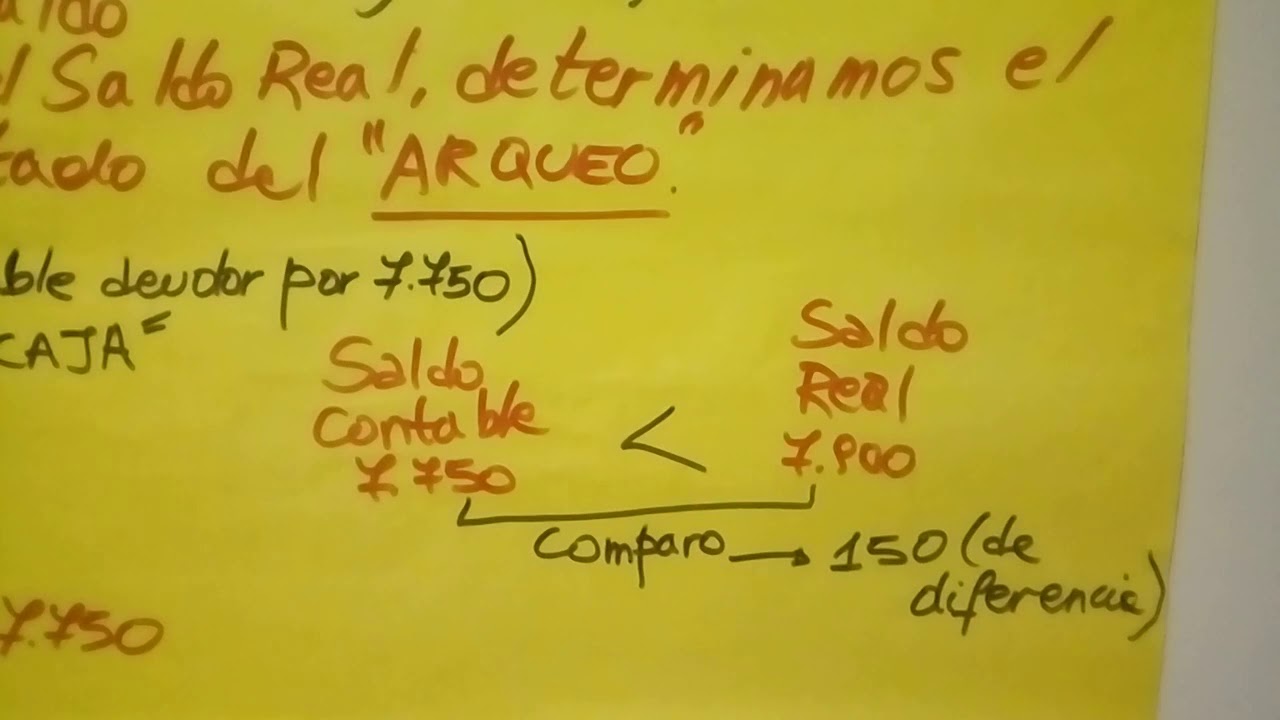 el Saldo Real, determinamos el
tado del "ARQUEO".
ble deudor por 7.750)
CAJA"
Saldo
Contable
7.750
<
Saldo
Real
7.900
comparo → 150 (de
diferencia)
7.750